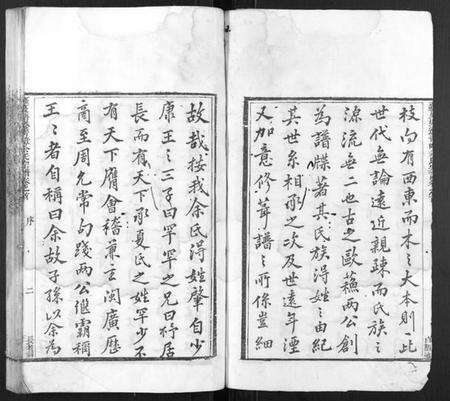 枝白有西東而木之大本則一此
世代無論遠近親疎而氏族之
源流無二也古之歐蘇兩公創
為譜牒著其氏族得姓之由紀
其世系相承之次及世遠年湮
又加意修葺譜之所係豈細
故哉按我余氏得姓肇自少
康王之三子曰罕罕之兄曰杼居
長而有天下承夏氏之姓罕少不
有天下膺會稽兼王閩廣歷
商至周允常勾踐兩公繼霸稱
王王者自稱曰余故子孫以余為
序
二